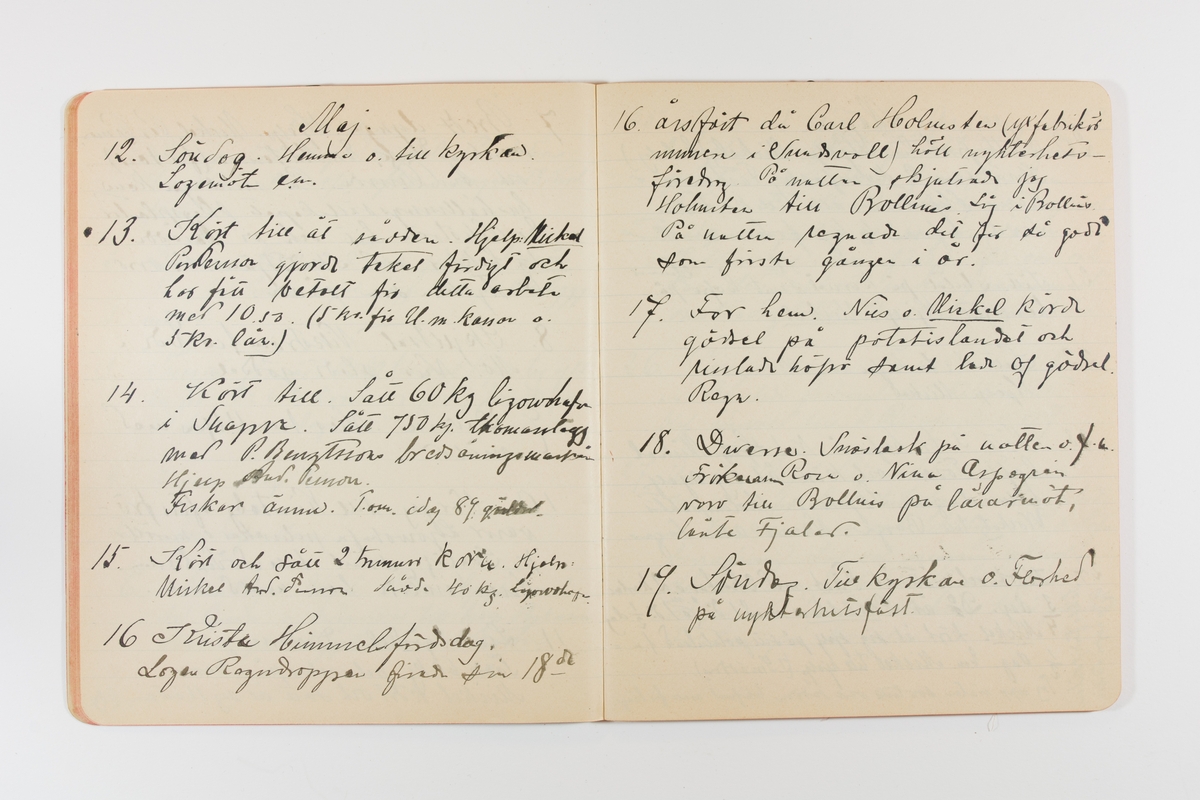 Maj.
12. Söndag. Hemma o. till kyrkan.
Logemöt em.
13. Kört till åt säden. Hjelp: Mickel
Persson gjorde taket färdigt och
har fått betalt för detta arbete
med 10.50. (5 kr. för U.m. kassan o.
5 kr. lån.)
14. Kört till. Sått 60 kg ligowohafre
i Skappe. Sått 750 kg. thomasslagg
med P. Bengtssons bredsåningsmaskin
Hjelp And. Persson.
Fiskar ännu. T.om. idag 89
15. Kört och sått 2 tunnor korn. Hjelp:
Mickel And. Persson Sådde 40 kg. ligowohafre.
16 Kristi Himmelsfärdsdag.
Logen Regndroppen firade sin 18de
16. årsfäst då Carl Holmsten (ylfabrikör
numera i Sundsvall) höll nykterhets-
föredrag. På natten skjutsade jag
Holmsten till Bollnäs Låg i Bollnäs
På natten regnade det för så godt
som första gången i år.
17. For hem. Nils o. Mickel körde
gödsel på potatislandet och
höfrö samt lade af gödsel.
Regn.
18. Diverse. Snöslask på natten o. f.m.
Fröknarna Rosa o. Nina Aspegrén
voro till Bollnäs på läraremöt,
lånte Fjalar.
19. Söndag. Till kyrkan o. Florhed
på nykterhetsfäst.